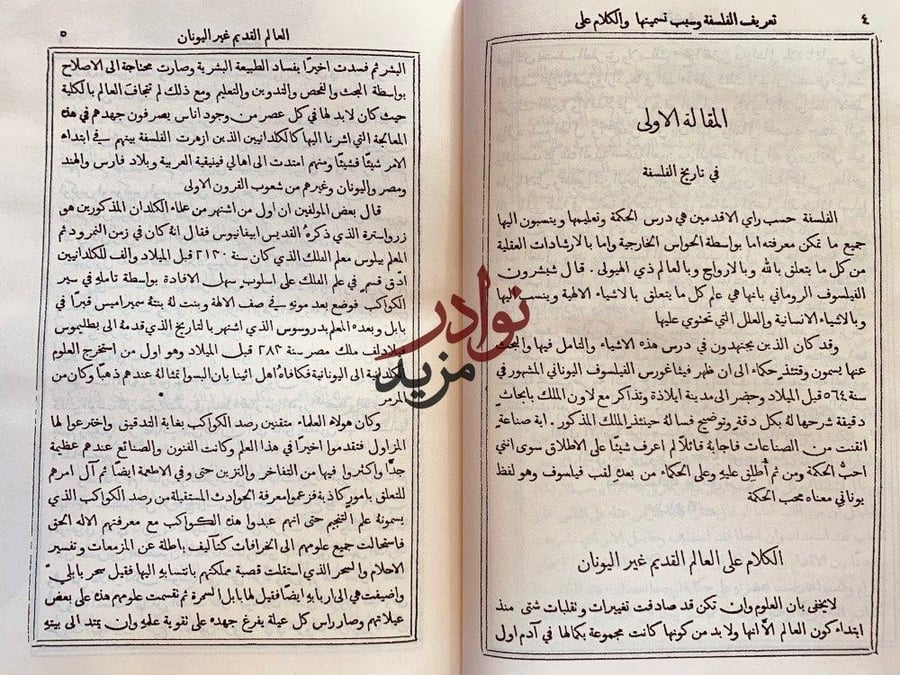 ٤
تعريف الفلسفة وسبب تسميتها والكلام على
المقالة الاولى
في تاريخ الفلسفة
الفلسفة حسب راي الاقدمين هي درس الحكمة وتعليمها وينسبون اليها
جميع ما تمكن معرفته اما بواسطة الحواس الخارجية واما بالارشادات العقلية
من كل ما يتعلق بالله وبالارواح وبالعالم ذي الهيولى . قال شيشرون
الفيلسوف الروماني بانها هي علم كل ما يتعلق بالاشياء الالهية وينسب اليها
وبالاشياء الانسانية والعلل التي تحتوي عليها
وقد كان الذين يجتهدون في درس هذه الاشياء والتامل فيها والبحث
عنها يسمون وقتئذٍ حكماء الى ان ظهر فيثاغورس الفيلسوف اليوناني المشهور في
سنة ٥٦٤ قبل الميلاد وحضر الى مدينة ايلاذة وتذاكر مع لاون الملك بابحاث
دقيقة شرحها له بكل دقة وتوضيح فسالة حينئذ الملك المذكور . اية صناعة
اتقنت من الصناعات فاجابه قائلاً لم اعرف شيئًا على الاطلاق سوى انني
احبُّ الحكمة ومن ثم أُطلق عليهِ وعلى الحكماء من بعدهِ لقب فيلسوف وهو لفظ
يوناني معناه محب الحكة
الكلام على العالم القديم غير اليونان
لا يخفى بان العلوم وان تكن قد صادفت تغييرات وتقلبات شتى منذ
ابتداء كون العالم الاَّ انها ولا بد من كونها كانت مجموعة بكمالها في آدم اول
العالم القديم غير اليونان
٥
البشر ثم فسدت اخيرًا بفساد الطبيعة البشرية وصارت محتاجة الى الاصلاح
بواسطة البحث والفحص والتدوين والتعليم ومع ذلك لم تتجاف العالم بالكلية
حيث كان لابد لها في كل عصر من وجود اناس يصرفون جهدهم في هذه
المعالجة التي اشرنا اليها كالكلدانيين الذين ازهرت الفلسفة بينهم في ابتداء
الامر شيئًا فشيئًا ومنهم امتدت الى اهالي فينيقية العربية وبلاد فارس والهند
ومصر واليونان وغيرهم من شعوب القرون الاولى
قال بعض المولفين ان اول من اشتهر من علماء الكلدان المذكورين هو
زرواسترة الذي ذكرهُ القديس ابيفانيوس فقال انهُ كان في زمن النمرود ثم
المعلم بيلوس معلم الفلك الذي كان سنة ٢١٣٠ قبل الميلاد والف للكلدانيين
ادق قسم في علم الفلك على اسلوب سهل الافادة بواسطة تاملهِ في سير
الكواكب فوضع بعد موتهِ في صف الالهة وبنت لهُ بنتهُ سميراميس قبرًا في
بابل وبعدهُ المعلم بدروسوس الذي اشتهر بالتاريخ الذي قدمهُ الى بطليموس
فيلادلف ملك مصر سنة ٢٨٢ قبل الميلاد وهو اول من استخرج العلوم
الكلدانية الى اليونانية فكافاهُ اهل اثينا بان البسوا تمثالهُ عندهم ذهبًا وكان من
المرمر
وكان هولاء العلماء متقنين رصد الكواكب بغاية التدقيق واخترعوا لها
المزاول فتقدموا اخيرًا في هذا العلم وكانت الفنون والصنائع عندهم عظيمة
جدًّا واكثروا فيها من التفاخر والتزين حتى وفي الاطعمة ايضًا ثم آل امرهم
للتعلق بامور كاذبة فزعموا معرفة الحوادث المستقبلة من رصد الكواكب الذي
يسمونهُ علم التنجيم حتى انهم عبدوا هذه الكواكب مع معرفتهم الاله الحق
فاستحالت جميع علومهم الى الخرافات كتآليف باطلة عن المزمعات وتفسير
الاحلام والسحر الذي استقلت قصبة مملكتهم بانتسابهِ اليها فقيل سحر بابليٌّ
واضيفت هي الى اربابهِ ايضًا فقيل لها بابل السحرة ثم تقسمت علومهم هذه على بعض
عيلاتهم وصار راس كل عيلة يفرغ جهده على تقوية علمهِ وان يمتد الى بيتهِ
نوادر
مزيد